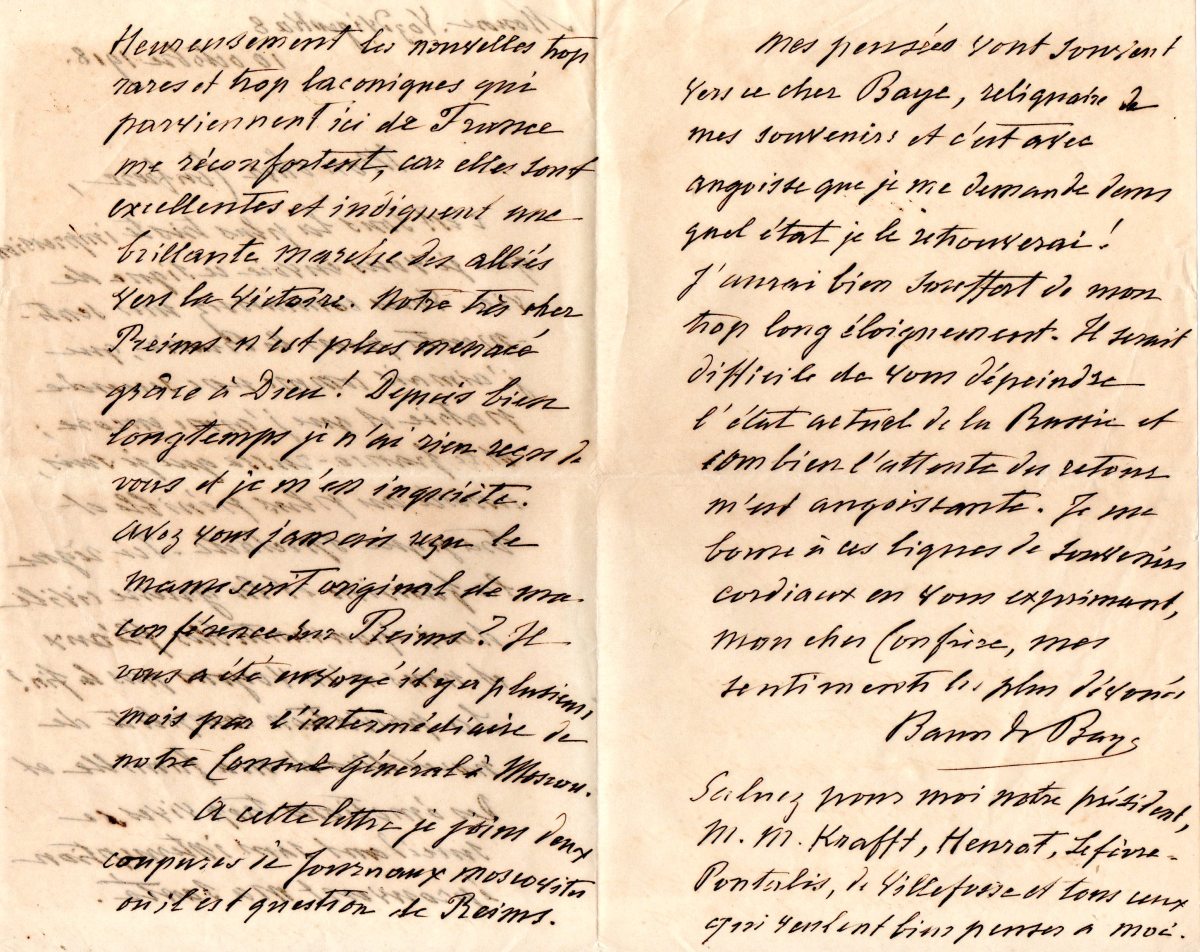 Heureusement les nouvelles trop
rares et trop laconiques qui
parviennent ici de France
me réconfortent, car elles sont
excellentes et indiquent une
brillante marche des alliés
vers la victoire. Notre très cher
Reims n'est plus menacé
grâce à Dieu! Depuis bien
longtemps je n'ai rien reçu de
vous et je m'en inquiète.
Avez vous jamais reçu le
manuscrit original de ma
conférence sur Reims? Il
vous a été envoyé il y a plusieurs
mois par l'intermédiaire de
notre Consul général à Moscou.
A cette lettre je joins deux
coupures de journaux moscovites
où il est question de Reims.
Mes pensées vont souvent
vers ce cher Baye, reliquaire de
mes souvenirs et c'est avec
angoisse que je me demande dans
quel état je le retrouverai!
J'aurai bien souffert de mon
trop long éloignement. Il serait
difficile de vous dépeindre
l'état actuel de la Russie et
combien l'attente du retour
m'est angoissante. Je me
borne à ces lignes de souvenirs
cordiaux en vous exprimant,
mon cher Confrère, mes
sentiments les plus dévoués
Baron de Baye
Saluez pour moi notre président,
M. M. Krafft, Henrot, Lefèvre-
Pontalis, de Villefosse et tous ceux
qui veulent bien penser à moi.